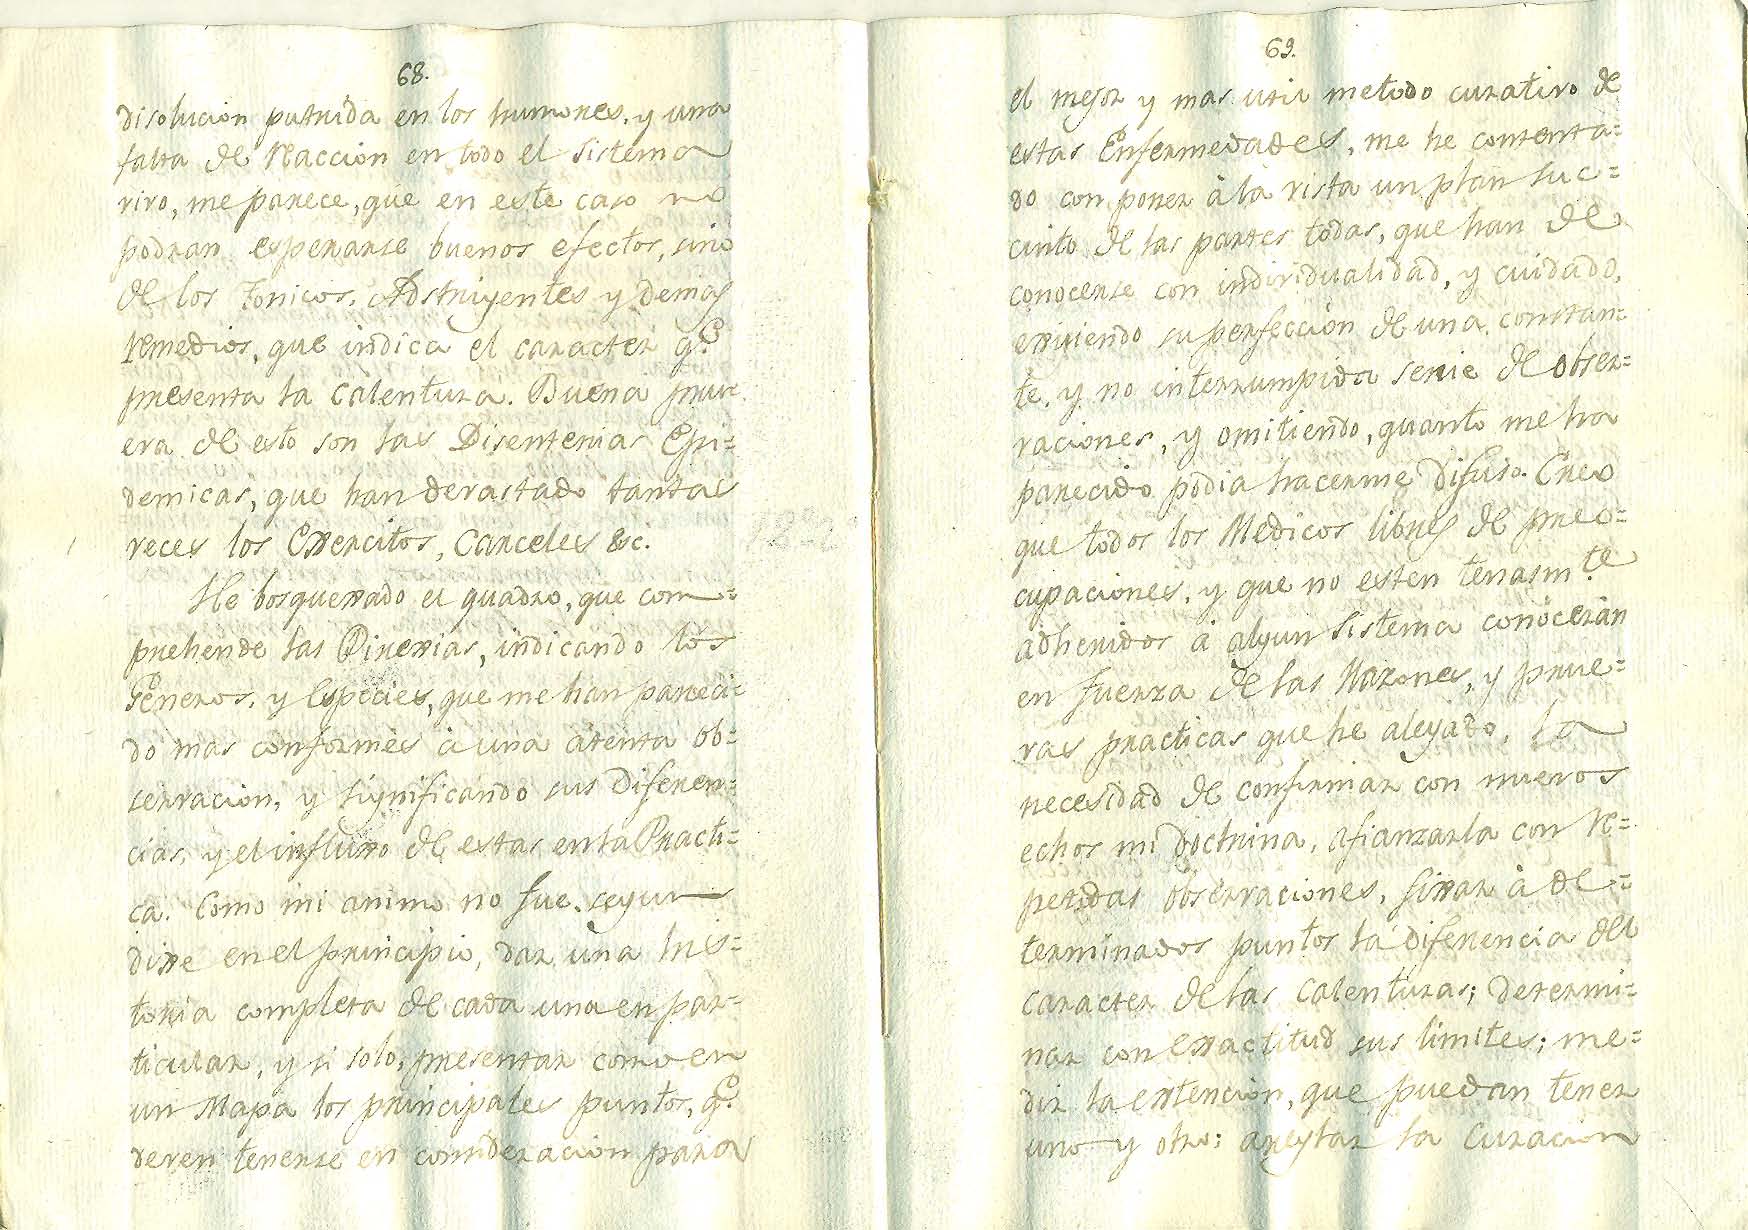 68.
disolucion putrida en los humores, y una
falta de Reaccion en todo el sistema
vivo, me parece, que en este caso no
podran esperarse buenos efectos, sino
de los tonicos, Adstrigentes y demas
remedios, que indica el caracter q.e
presenta la Calentura. Buena prue-
eva de esto son las Disenterias Epi=
demicas, que han devastado tantas
veces los Exercitos, Carceles &c.
He bosquexado el quadro, que com=
prehende las Pirexias, indicando los
Generos, y Especies, que me han pareci=
do mas conformes à una atenta ob=
servacion, y significando sus Diferen=
cias, y el influxo de estas en la Practi=
ca. Como mi animo no fue, segun
dixe en el principio, dar una his=
toria completa de cada una en par=
ticular, y si solo, presentar como en
un Mapa los principales puntos, q.e
deven tenerse en consideracion para
69.
el mejor y mas util metodo curativo de
estas Enfermedades, me he contenta=
do con poner à la vista un plan suc=
cinto de las partes todas, que han de
conocerse con individualidad, y cuidado,
exigiendo su perfeccion de una constan=
te, y no interrumpida serie de obser=
vaciones, y omitiendo, quanto me ha
parecido podia hacerme difuso. Creo
que todos los Medicos libres de preo=
cupaciones, y que no esten tenasm.te
adheridos à algun sistema conoceràn
en fuerza de las Razones, y prue=
vas practicas que he alegado, la
necesidad de confirmar con nuevos
echos mi doctrina, afianzarla con re=
petidas observaciones, fixar à de=
terminados puntos la diferencia del
caracter de las Calenturas; determi=
nar con exactitud sus limites; me=
dir la extencion, que puedan tener
uno y otro; arreglar la Curacion